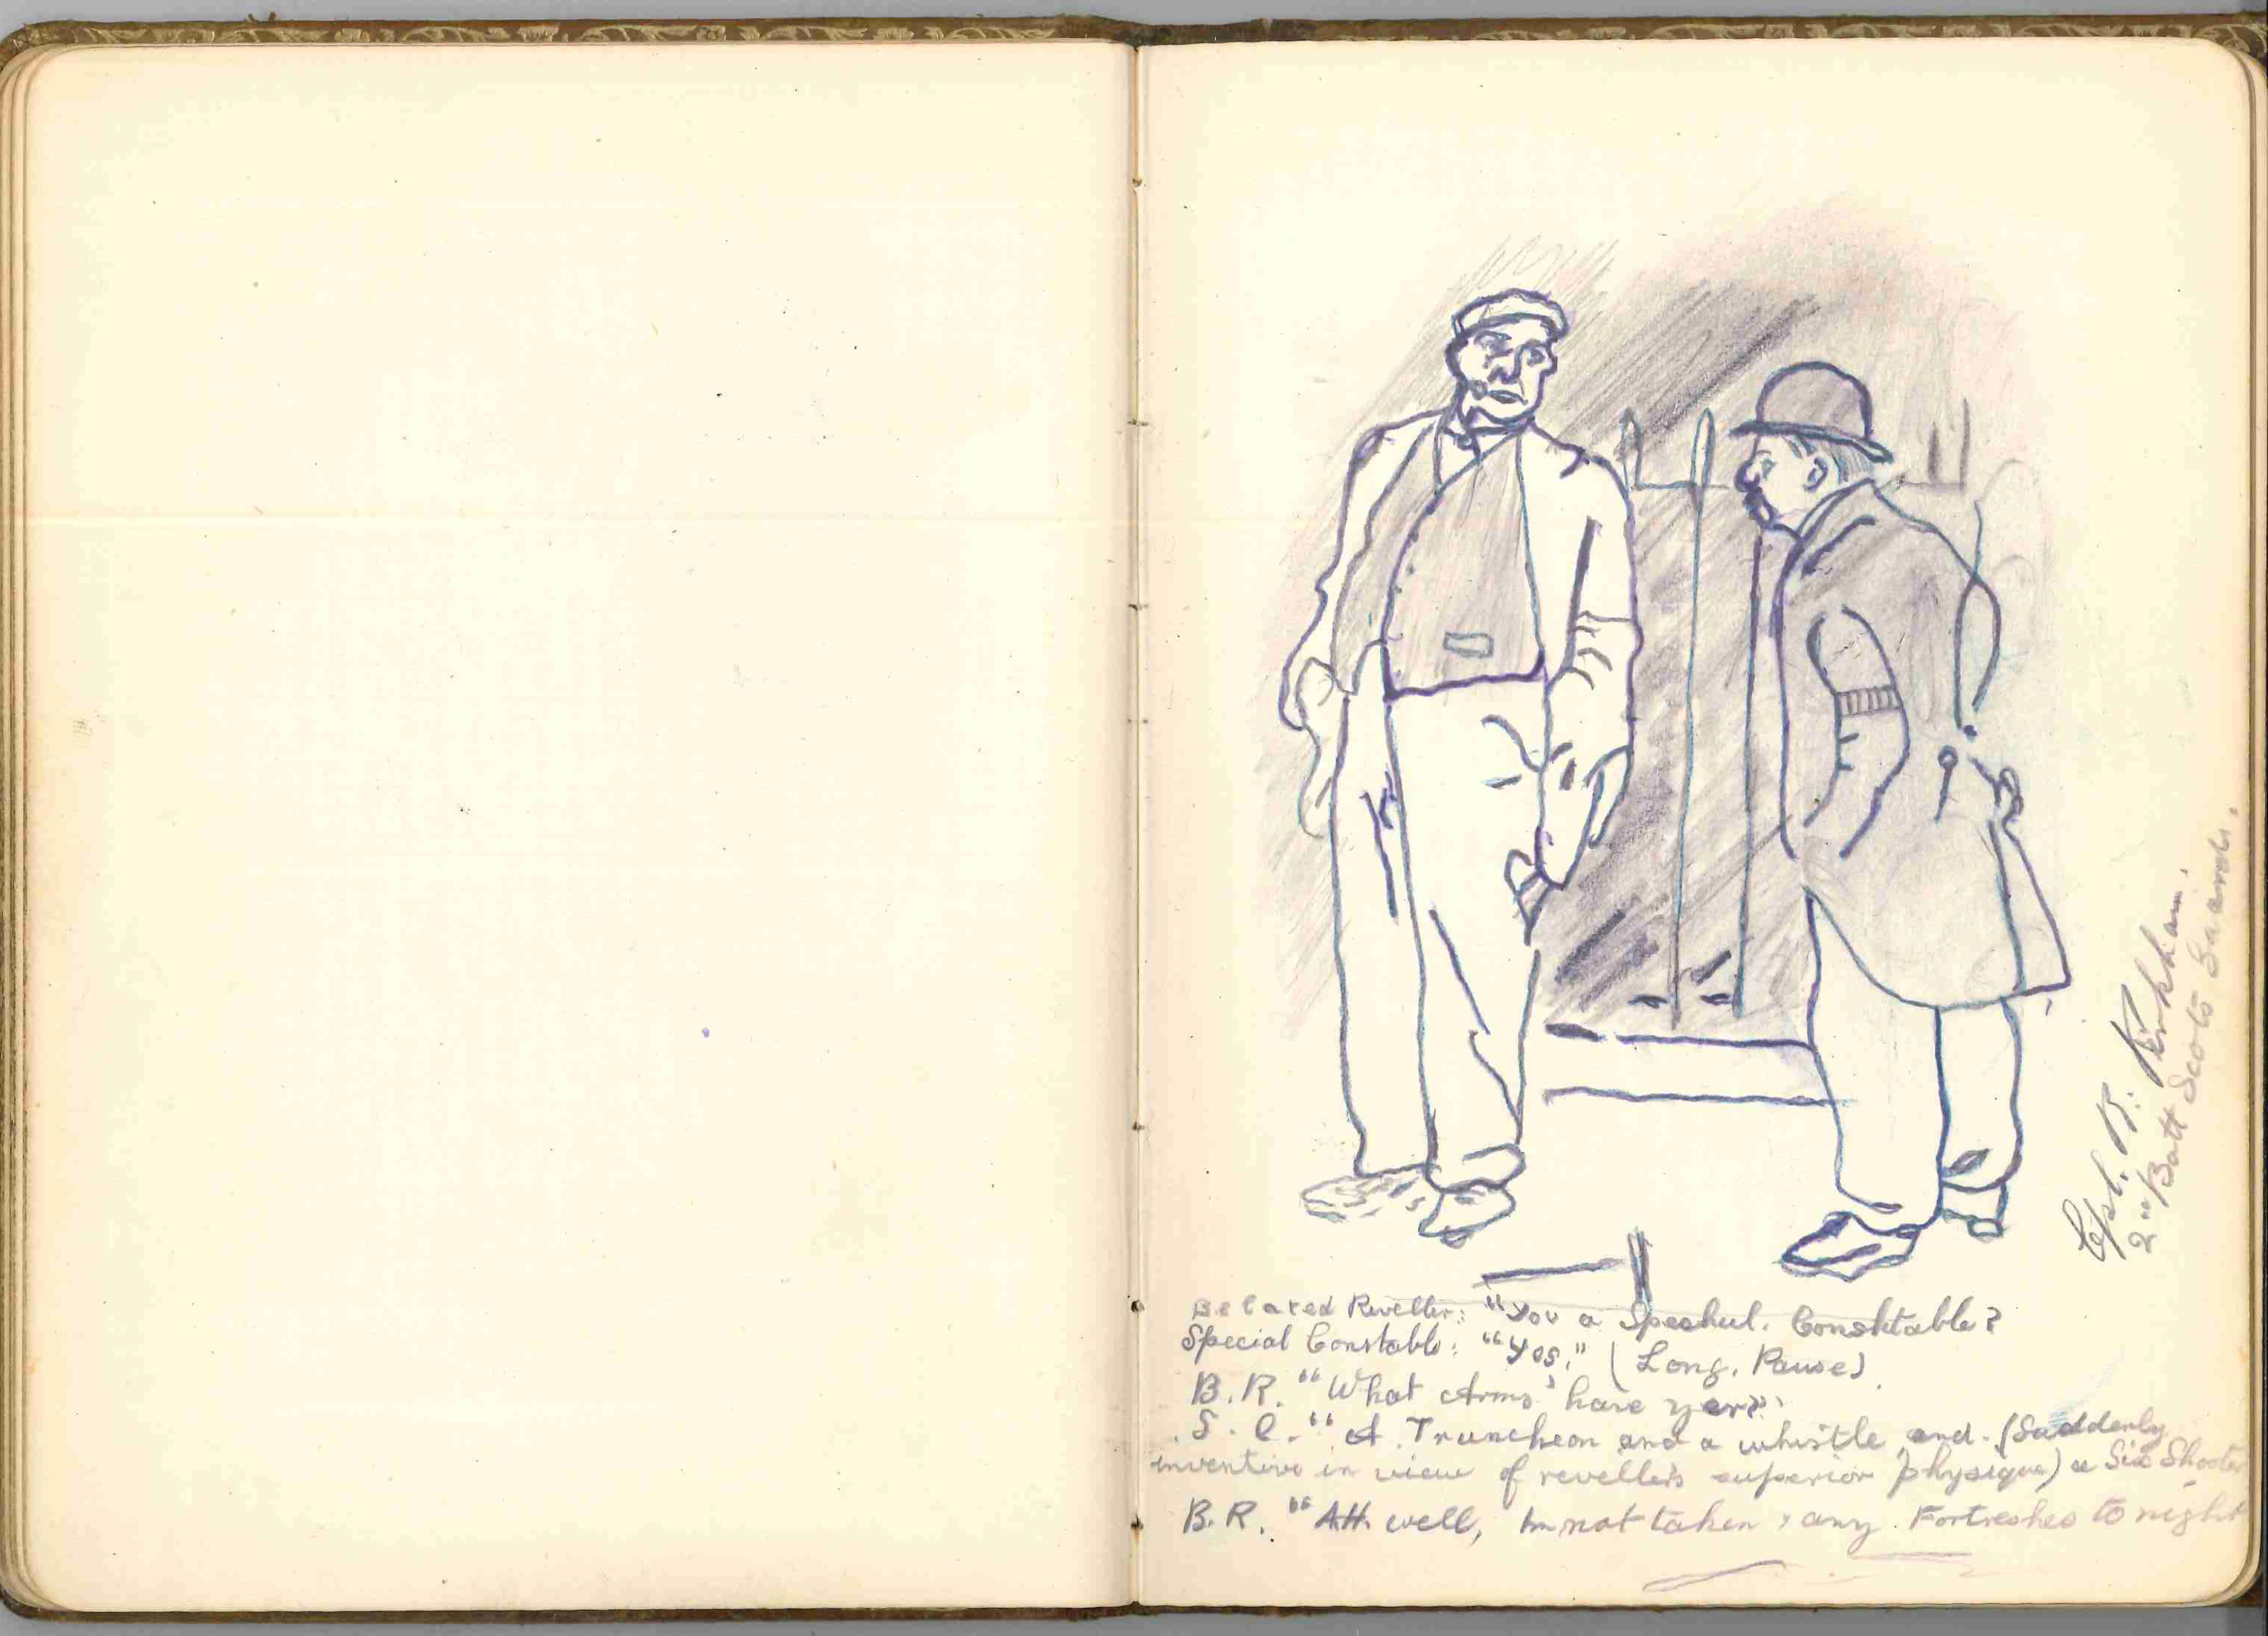 Belated Reveller: "You a Speshul. Conshtable?
Special Constable: "Yes." (Long. Pause).
B.R. "What Arms' have yer?"
S.C. "A Truncheon and a whistle and (Suddenly
inventive in view of revellers superior physique) a Six Shooter
B.R. "AH. well, Im not taken, any. Fortreshes to night
Cpl. R. Kirkham.
2nd Batt Scots Guards.